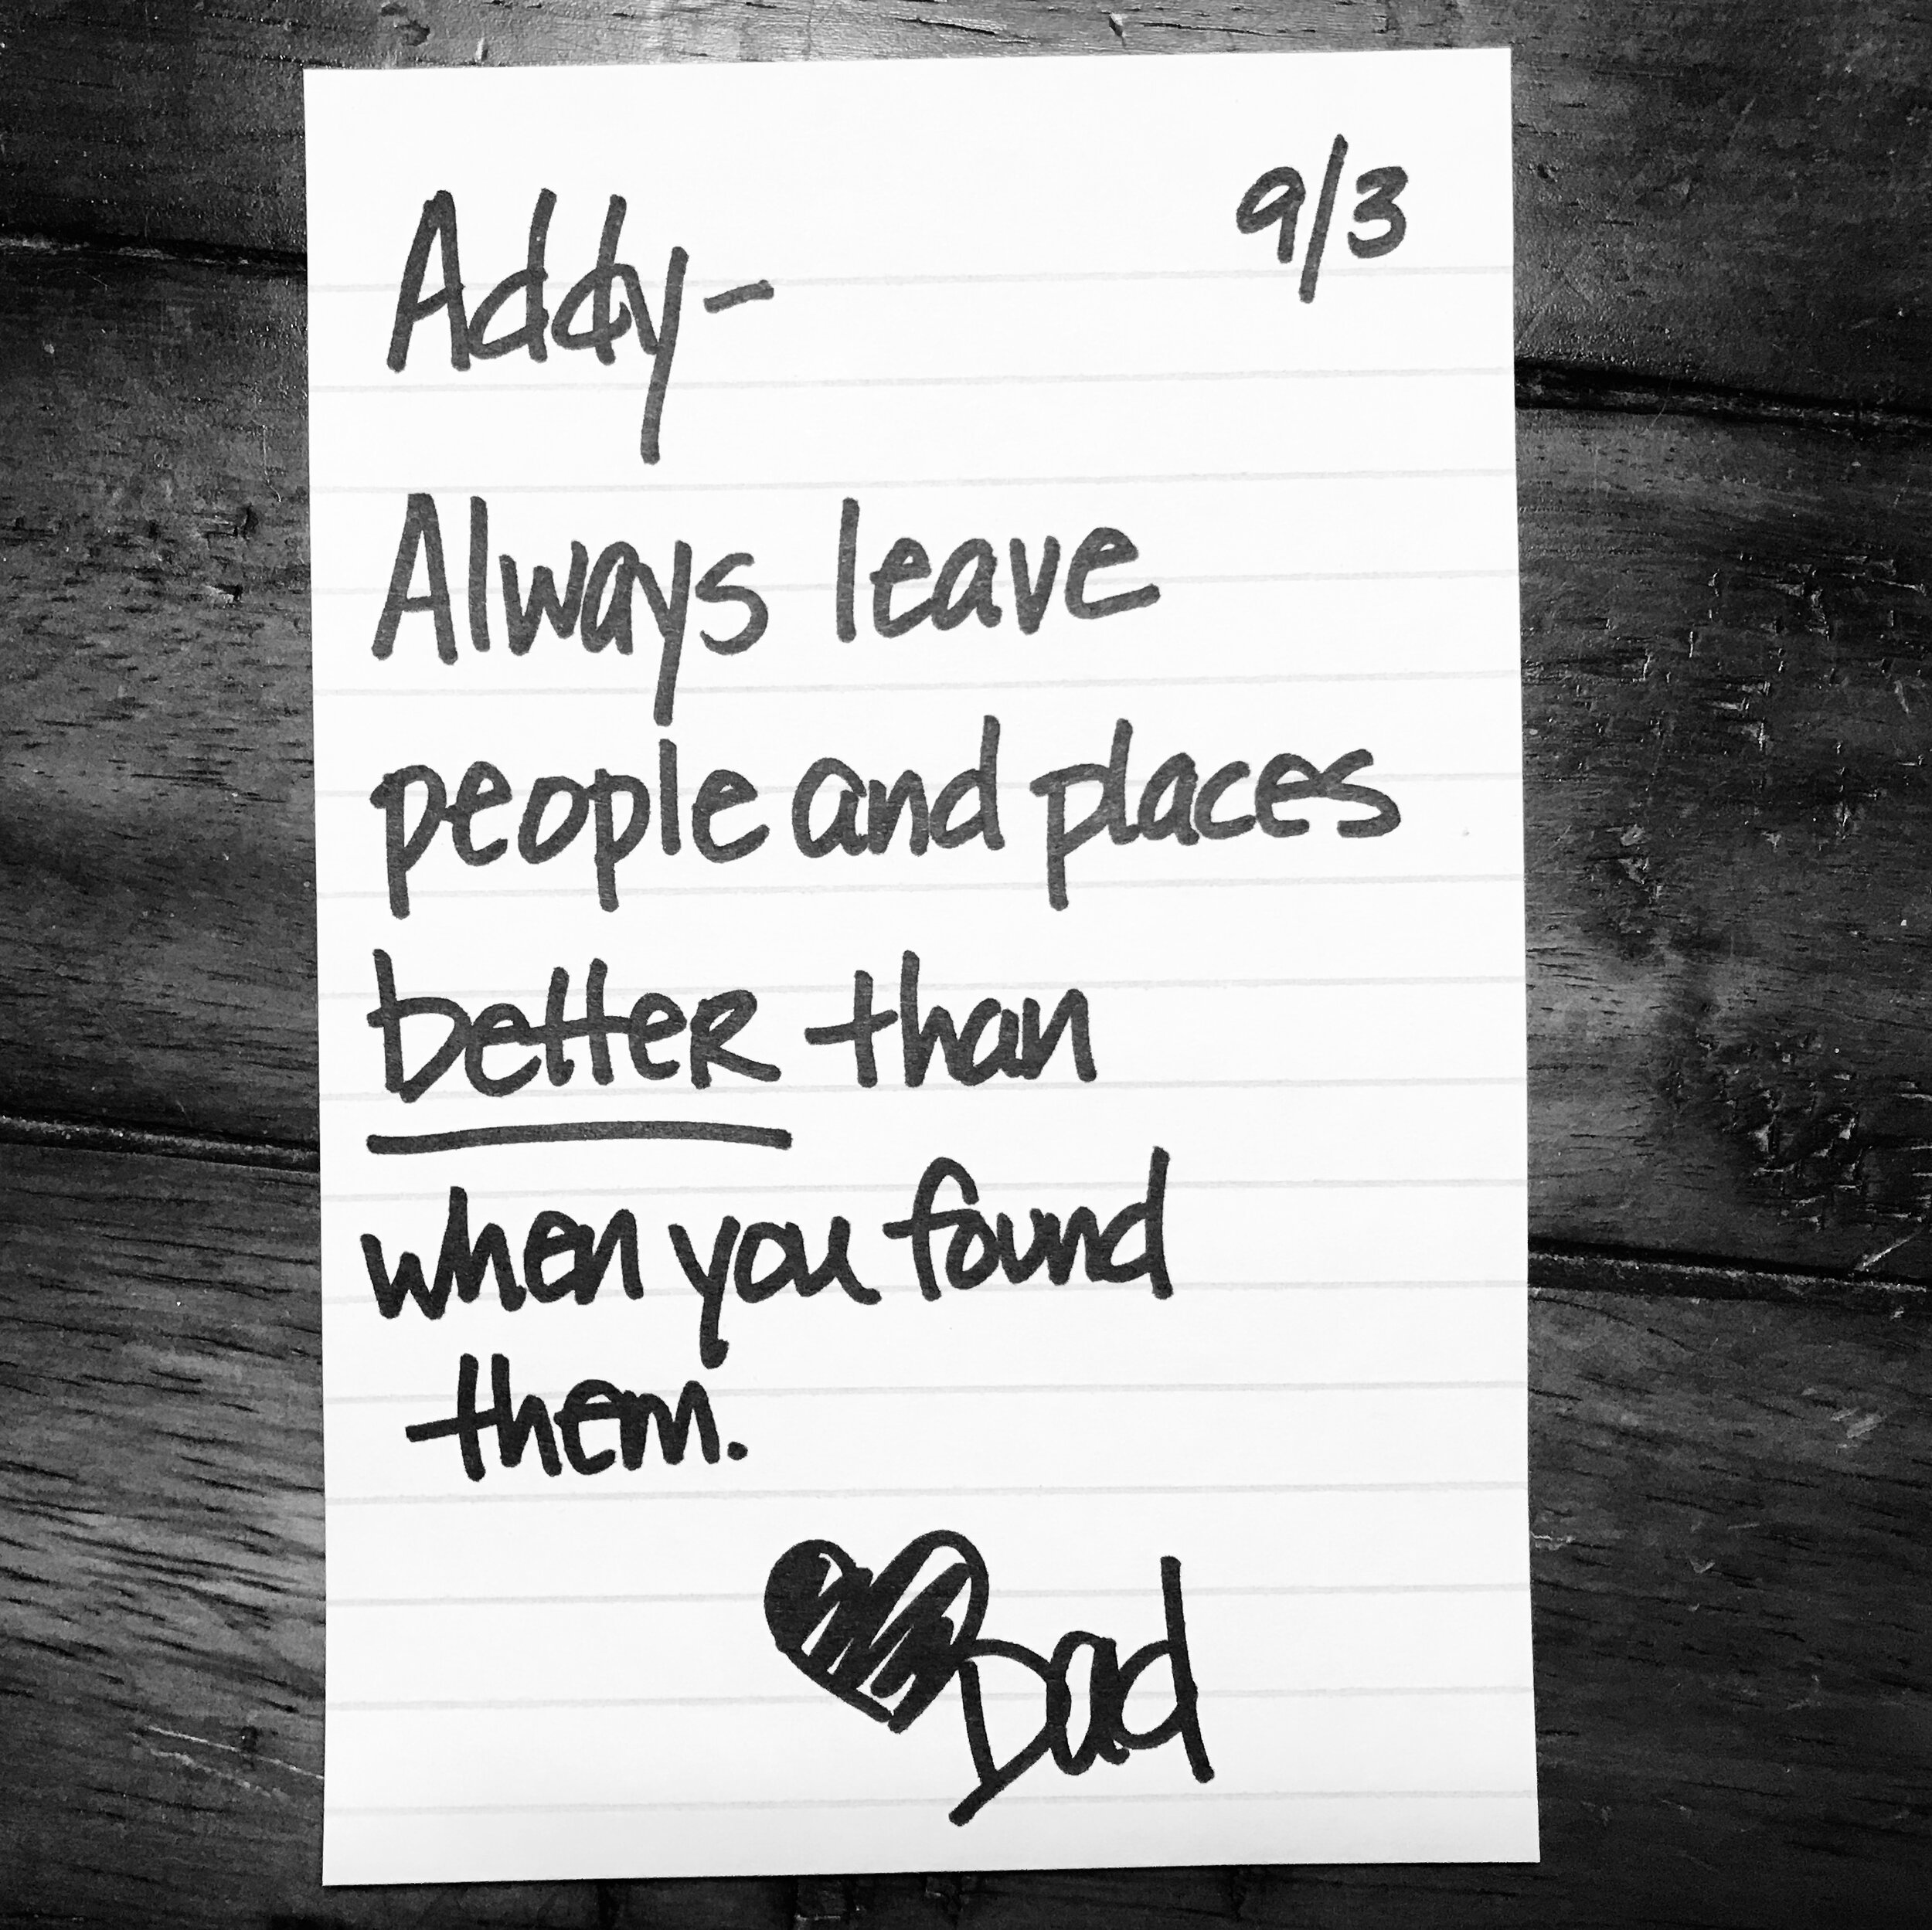 9/3
Addy-
Always leave
people and places
better than
when you found
them.
Dad